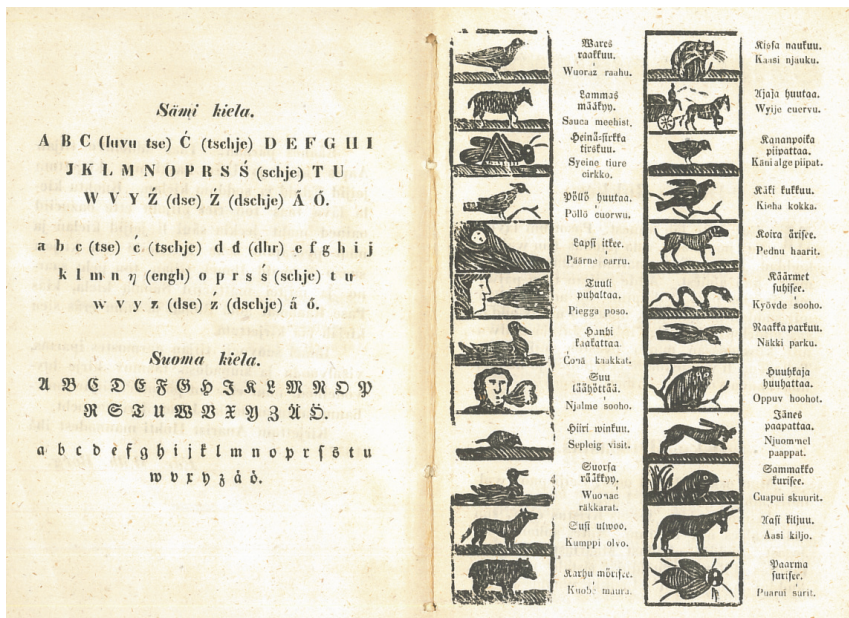 Sämi kiela.
A B C (luvu tse) Ć (tschje) D E F G H I
J K L M N O P R S Ś (schje) T U
W V Y Ź (dse) Ź (dschje) Ä Ó.
a b c (tse) ć (tschje) d đ (dhr) e f g h i j
k l m n η (engh) o p r s ś (schje) t u
w v y z (dse) ź (dschje) ä ó.
Suoma kiela.
A B C D E F G H J K L M N O P
R S T U W V X Y Z Ä Ö.
a b c d e f g h i j k l m n o p r s s t u
w v x y z å ö.
Wares
raakkuu.
Wuoraz raahu.
Lammas
määkyy.
Sauca meehist.
Heinä-sirkka
tirskuu.
Syeine tiure
cirkko.
Pöllö huutaa.
Pöllö cuorwu.
Lapsi itkee.
Päärne carru.
Tuuli
puhaltaa.
Piegga poso.
Hanhi
kaakattaa.
kaakkat.
Suu
läähöttää.
Njalme sooho.
Hiiri winkuu.
Sepleig visit.
Suorsa
rääkkyy.
räkkarat.
Susi ulwoo.
Kumppi olvo.
Karhu mörisee.
maura.
Kissa naukuu.
Kaasi njauku.
Ajaja huutaa.
Wyije cuervu.
Kananpoika
piipattaa.
Käni alge piipat.
Käki kukkuu.
Kieha kokka.
Koira ärisee.
Pednu haarit.
Käärmet
suhisee.
Kyövde sooho.
Naakka parkuu.
Näkki parku.
Huuhkaja
huuhattaa.
Oppuv hoohot.
Jänes
paapattaa.
Njuommel
paappat.
Sammakko
kurisee.
Cuapui skuurit.
Aasi kiljuu.
Aasi kiljo.
Paarma
surisee.
Puarui surit.